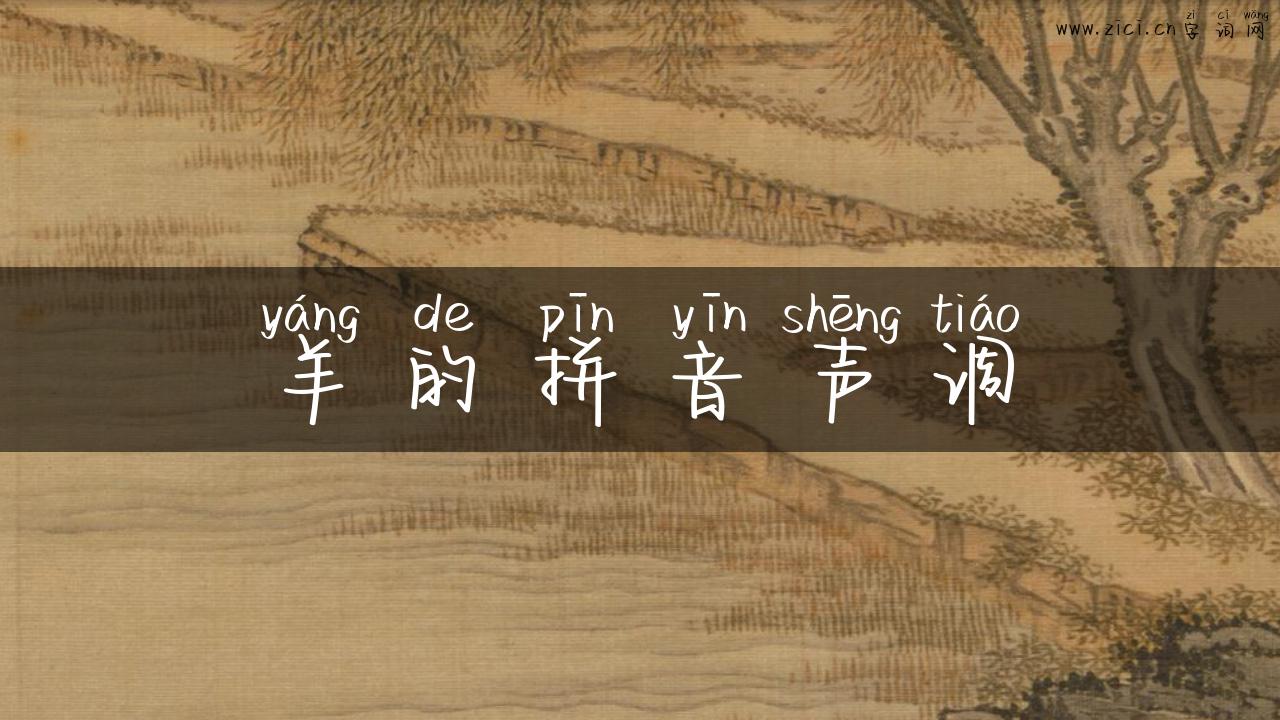 zì cí wǎng
www.zici.cn字词网
yáng de pīn yīn shēng tiáo
羊的拼音声调